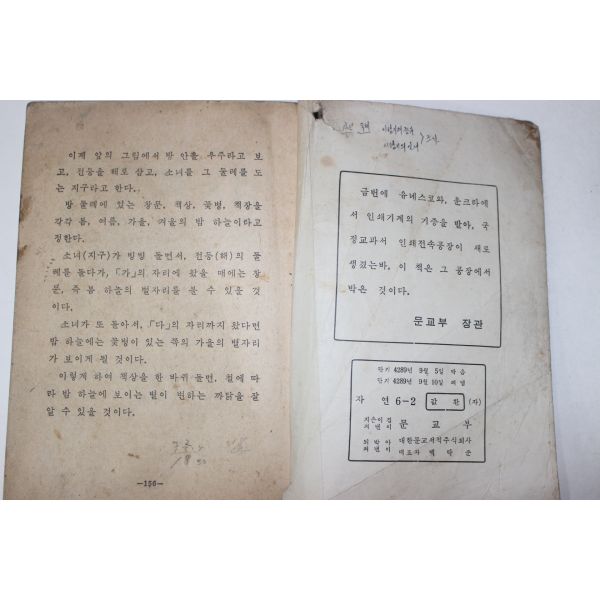 이제 앞의 그림에서 방 안을 우주라고 보
고, 전등을 해로 삼고, 소녀를 그 둘레를 도
는 지구라고 한다.
방 둘레에 있는 창문, 책상, 꽃병, 책장을
각각 봄, 여름, 가을, 겨울의 밤 하늘이라고
정한다.
소녀(지구)가 빙빙 돌면서, 전등(해)의 둘
레를 돌다가, 「가」의 자리에 왔을 때에는 창
문, 즉 봄 하늘의 별자리를 볼 수 있을 것
이다.
소녀가 또 돌아서, 「다」의 자리까지 왔다면
밤 하늘에는 꽃병이 있는 쪽의 가을의 별자리
가 보이게 될 것이다.
이렇게 하여 책상을 한 바퀴 돌면, 철에 따
라 밤 하늘에 보이는 별이 변하는 까닭을 잘
알 수 있을 것이다.
—156—
금번에 유네스코와, 운크라에
서 인쇄기계의 기증을 받아, 국
정교과서 인쇄전속공장이 새로
생겼는바, 이 책은 그 공장에서
박은 것이다.
문교부 장관
단기 4289년 9월 5일 박음
단기 4289년 9월 10일 펴냄
자연 6-2 값 환 (자)
지은이 겸 펴낸이 문교부
박아 펴낸이 대한문교서적주식회사
대표자 백락준